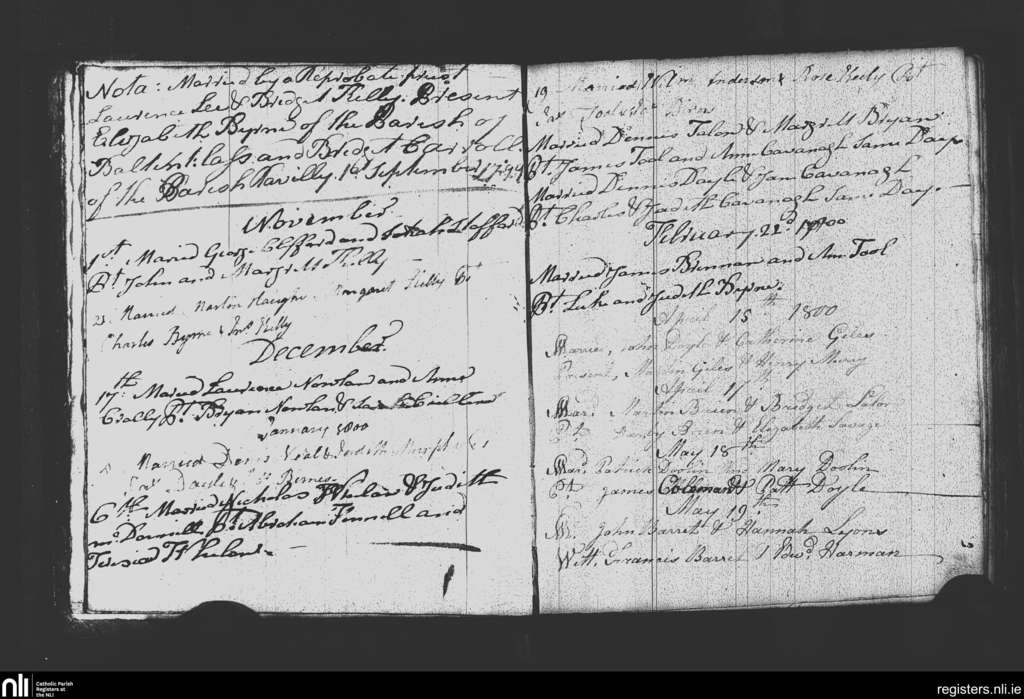 Nota: Married by a Reprobate priest
Laurence Lee & Bridget Kelly. Present
Elizabeth Byrne of the Parish of
Baltinklass and Bridget Carroll
of the Parish 1st September 1799
November
1st Maried George Cliffard and Stafford
Pt John and Margrett Kelly
23 Married Martin Margaret Kelly Pt
Charles Byrne & Kelly
December
17th: Maried Laurence Nowlan and Anne
Pt Bryan Nowlan &
January 1800
Married Denis & Judith
Byrne
6th Married Nicholas Whelan & Judith
McDonnell Pt Abraham Finnell and
Whelan
19 Married Willm Anderson & Rose Keely Pt
Married Dennis Talon & Margrett Bryan
Pt James Tool and Ann Cavanagh Same Day
Married Dennis Doyle & Jane Cavanagh
Pt Charles & Judith Cavanagh Same Day
February 22d 1800
Married James Brennan and Ann Tool
Pt Luke and Judith Byrne.
April 15th 1800
Married John Doyle & Catherine Giles
Present, Martin Giles & Henry
April 17th
Mard Martin Brien & Bridget
Pt Darby Brien & Elizabeth Savage
May 18th
Mard Patrick Doolin and Mary Doolin
Pt James Coleman & Patt Doyle
May 19th
M. John Barret & Hannah Lyons
Witt. Francis Barret & Harman
nli
Catholic Parish
Registers at
the NLI
registers.nli.ie